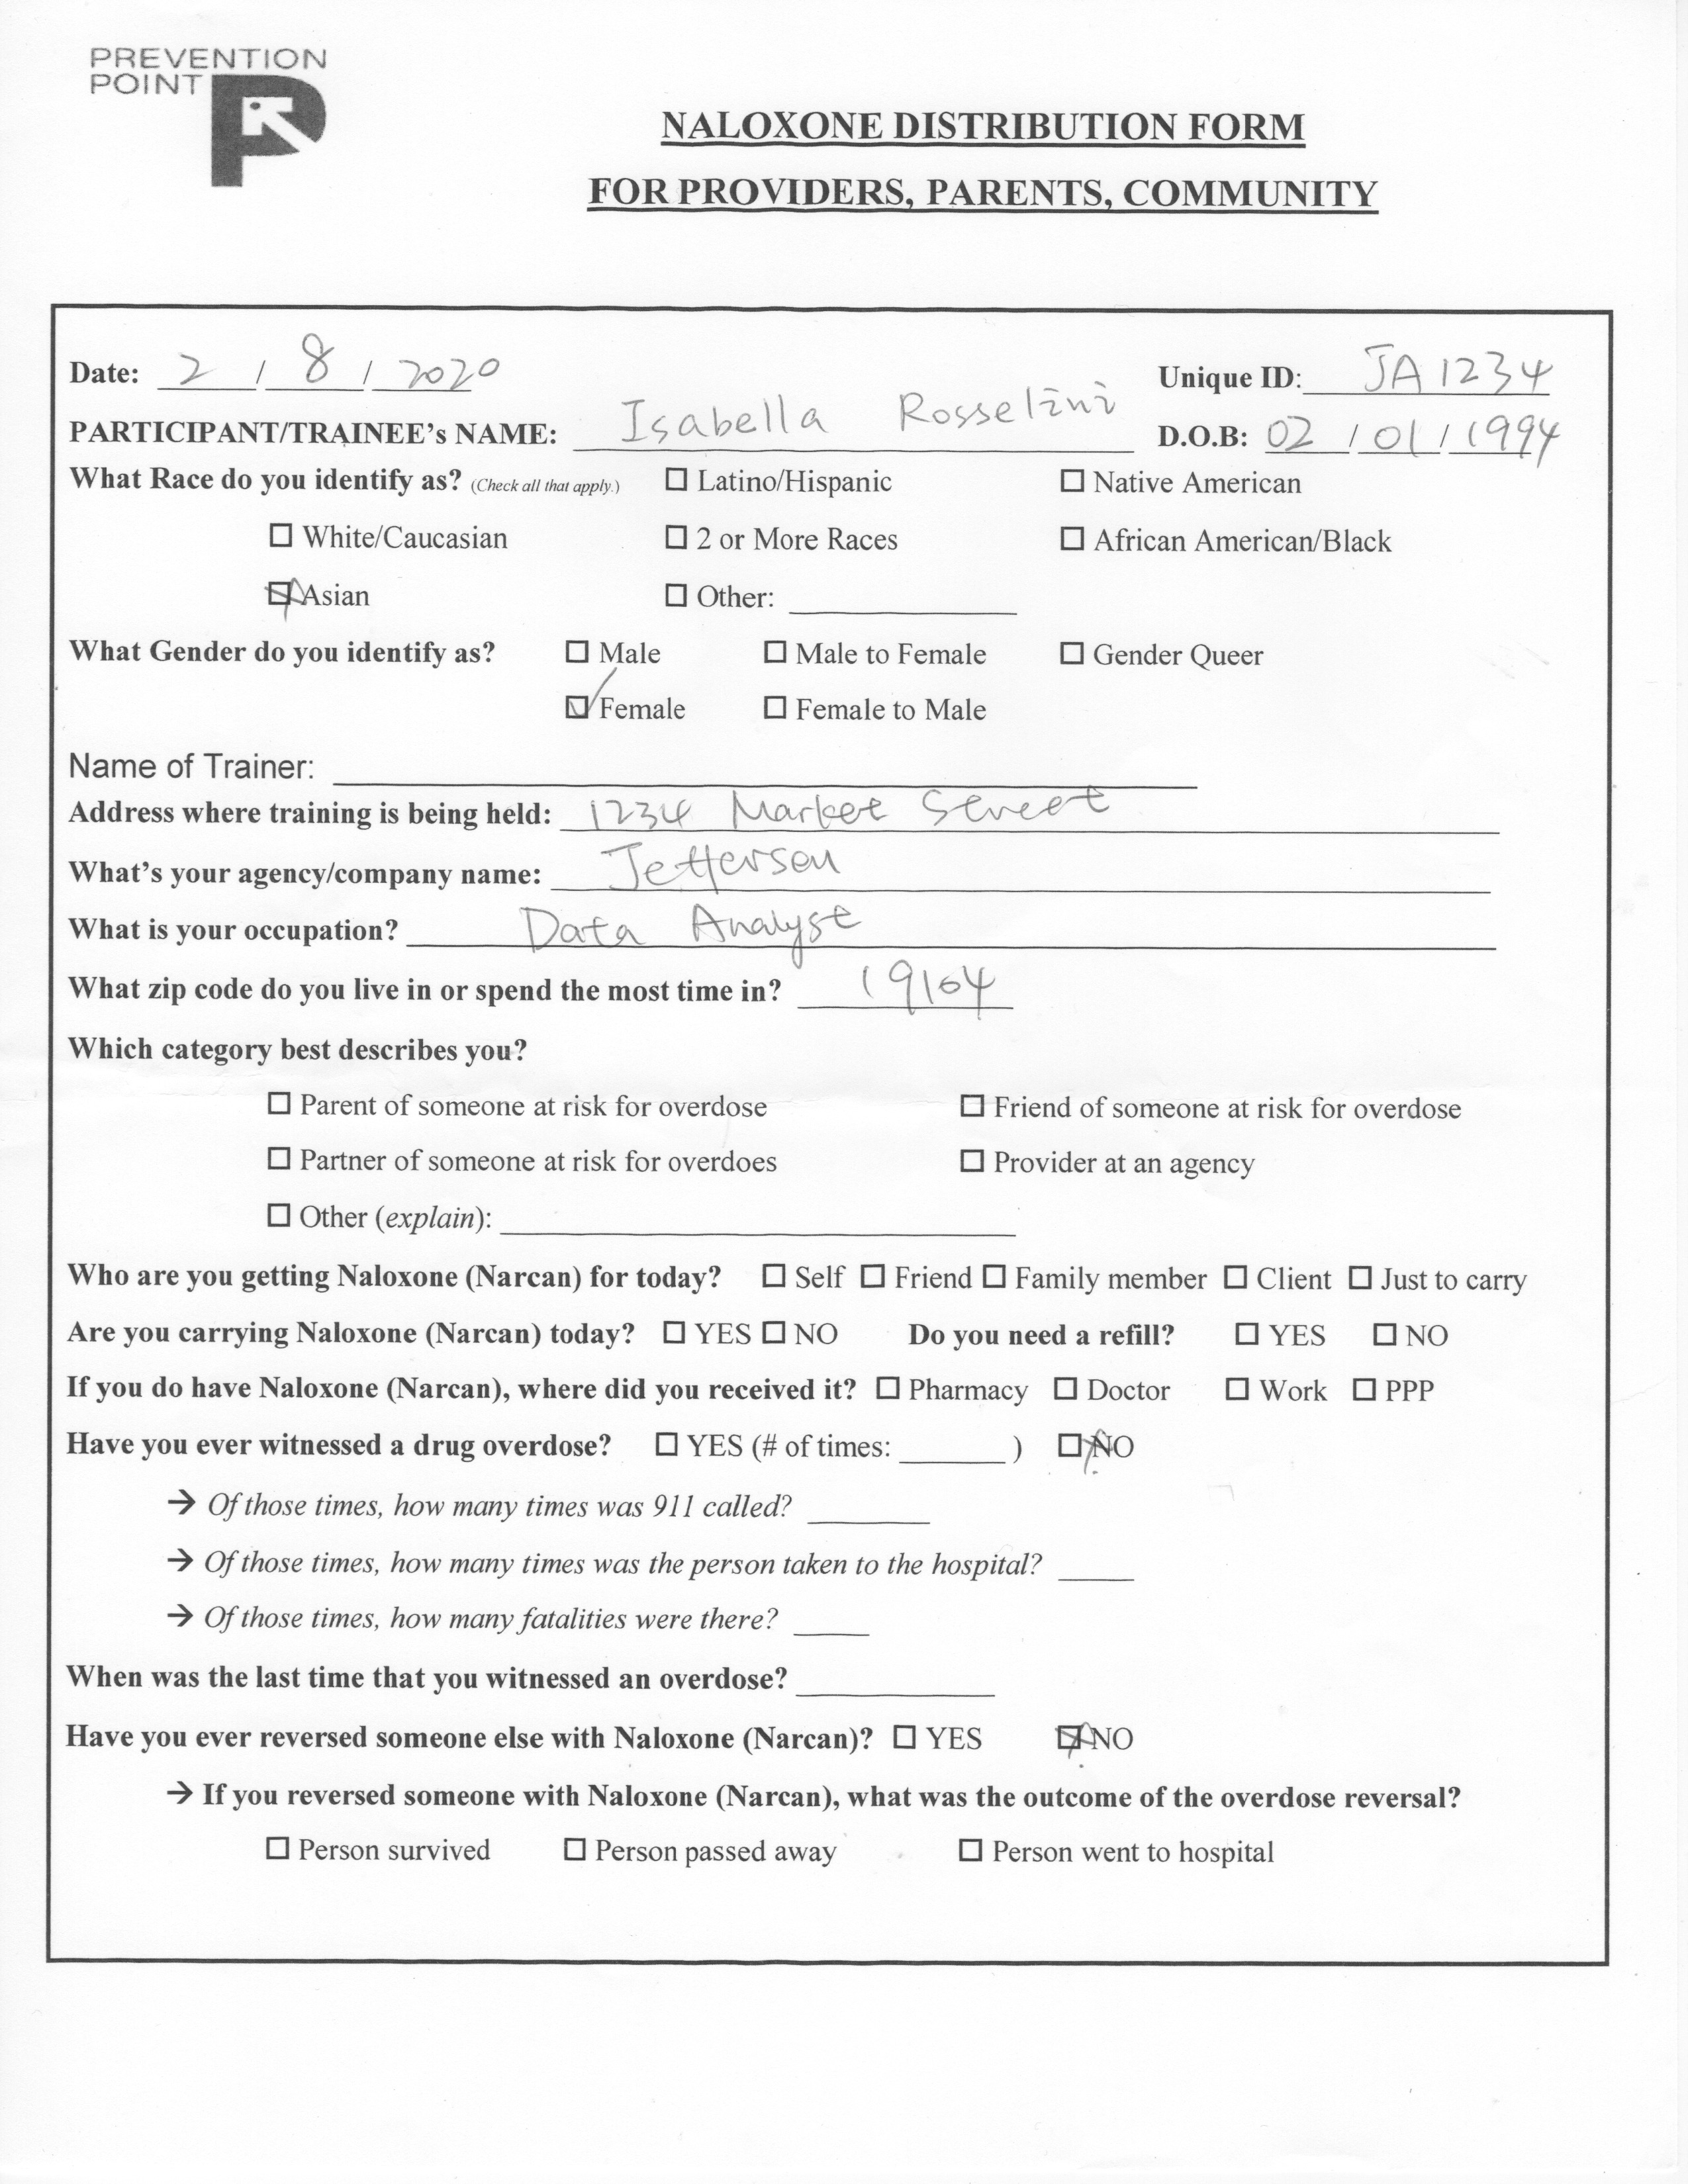 PREVENTION
POINT
NALOXONE DISTRIBUTION FORM
FOR PROVIDERS, PARENTS, COMMUNITY
Date: 2 / 8 / 2020 Unique ID: JA1234
PARTICIPANT/TRAINEE's NAME: Isabella Rosselini D.O.B: 02 / 01 / 1994
What Race do you identify as? (Check all that apply.) ☐ Latino/Hispanic ☐ Native American
☐ White/Caucasian ☐ 2 or More Races ☐ African American/Black
☒ Asian ☐ Other:
What Gender do you identify as? ☐ Male ☐ Male to Female ☐ Gender Queer
☑ Female ☐ Female to Male
Name of Trainer:
Address where training is being held: 1234 Market Street
What's your agency/company name: Jefferson
What is your occupation? Data Analyst
What zip code do you live in or spend the most time in? 19104
Which category best describes you?
☐ Parent of someone at risk for overdose ☐ Friend of someone at risk for overdose
☐ Partner of someone at risk for overdoes ☐ Provider at an agency
☐ Other (explain):
Who are you getting Naloxone (Narcan) for today? ☐ Self ☐ Friend ☐ Family member ☐ Client ☐ Just to carry
Are you carrying Naloxone (Narcan) today? ☐ YES ☐ NO Do you need a refill? ☐ YES ☐ NO
If you do have Naloxone (Narcan), where did you received it? ☐ Pharmacy ☐ Doctor ☐ Work ☐ PPP
Have you ever witnessed a drug overdose? ☐ YES (# of times: ) ☒ NO
→ Of those times, how many times was 911 called?
→ Of those times, how many times was the person taken to the hospital?
→ Of those times, how many fatalities were there?
When was the last time that you witnessed an overdose?
Have you ever reversed someone else with Naloxone (Narcan)? ☐ YES ☒ NO
→ If you reversed someone with Naloxone (Narcan), what was the outcome of the overdose reversal?
☐ Person survived ☐ Person passed away ☐ Person went to hospital